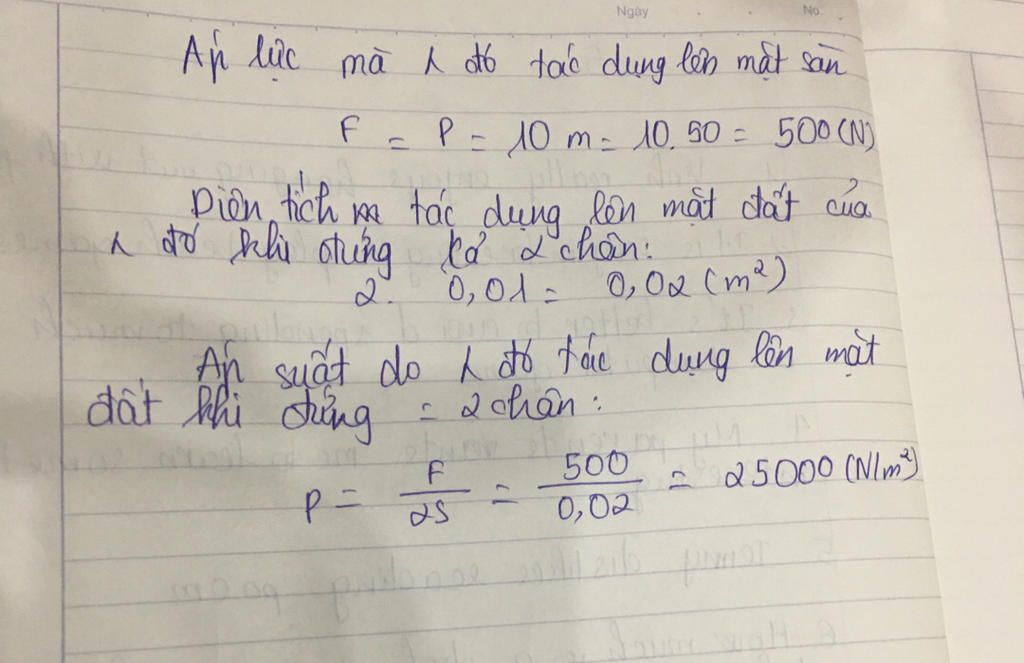 Ngày No.
Áp lực mà λ đó tác dụng lên mặt sàn
F = P = 10 m = 10. 50 = 500 (N)
Diện tích tác dụng lên mặt đất của
λ đó khi đứng cả 2 chân:
2. 0,01 = 0,02 (m²)
Áp suất do λ đó tác dụng lên mặt
đất khi đứng = 2 chân:
P = F/2S = 500/0,02 = 25000 (N/m²)